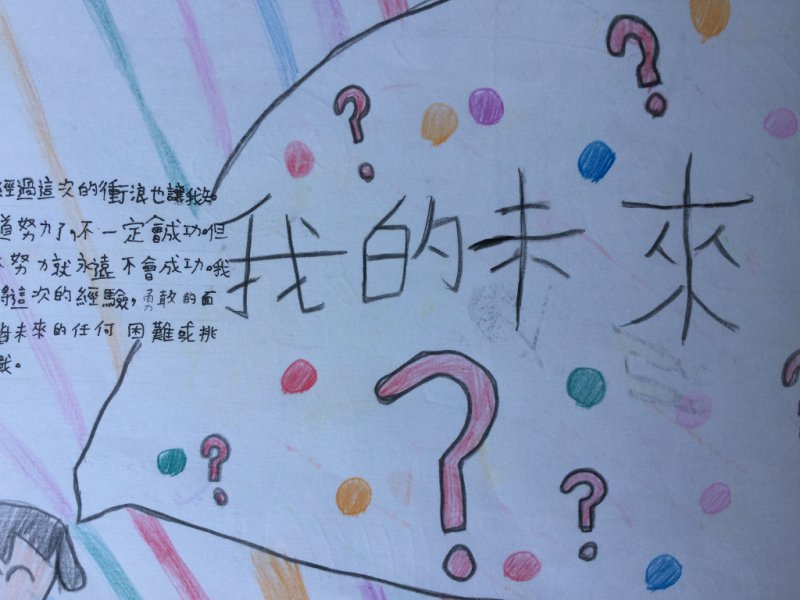 經過這次的衝浪也讓我知
道努力了,不一定會成功。但
努力就永遠不會成功。我
將這次的經驗,勇敢的面
未來的任何困難或挑
戰。
我的未來